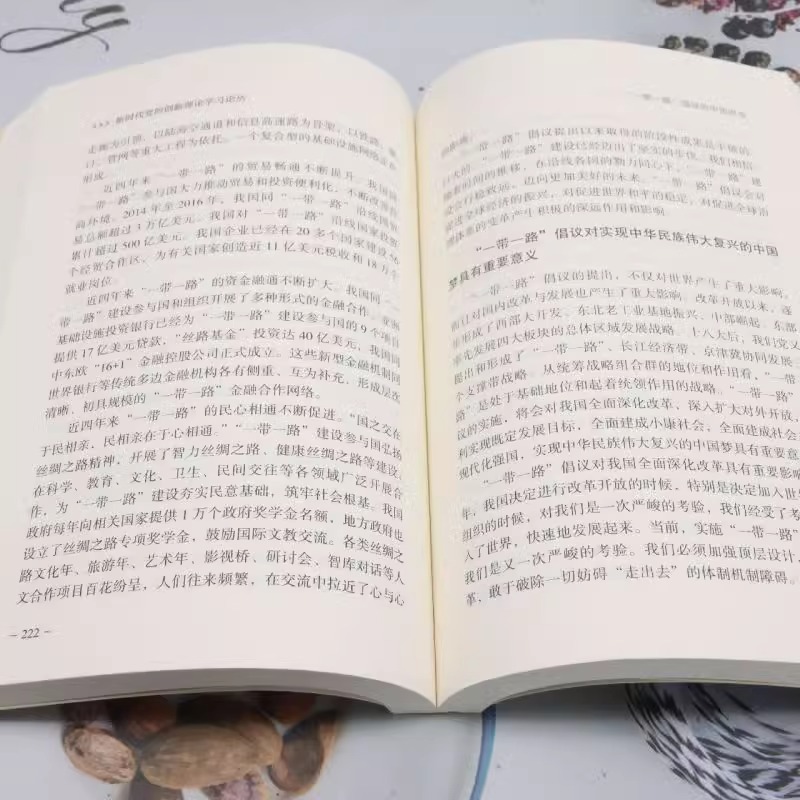 新时代党的创新理论学习论丛
走廊为引领，以陆海空通道和信息高速路为骨架，以铁路、港
口、管网等重大工程为依托，一个复合型的基础设施网络正在
形成。
近四年来“一带一路”的贸易畅通不断提升。我国同
“一带一路”参与国大力推动贸易和投资便利化，不断改善营
商环境。2014年至2016年，我国同“一带一路”沿线国家贸
易总额超过3万亿美元。我国对“一带一路”沿线国家投资
累计超过500亿美元。我国企业已经在20多个国家建设56
个经贸合作区，为有关国家创造近11亿美元税收和18万个
就业岗位。
近四年来“一带一路”的资金融通不断扩大。我国同“一
带一路”建设参与国和组织开展了多种形式的金融合作。亚洲
基础设施投资银行已经为“一带一路”建设参与国的9个项目
提供17亿美元贷款，“丝路基金”投资达40亿美元，我国同
中东欧“16+1”金融控股公司正式成立。这些新型金融机制同
世界银行等传统多边金融机构各有侧重、互为补充，形成层次
清晰、初具规模的“一带一路”金融合作网络。
近四年来“一带一路”的民心相通不断促进。“国之交在
于民相亲，民相亲在于心相通。”“一带一路”建设参与国弘扬
丝绸之路精神，开展了智力丝绸之路、健康丝绸之路等建设，
在科学、教育、文化、卫生、民间交往等各领域广泛开展合
作，为“一带一路”建设夯实民意基础，筑牢社会根基。我国
政府每年向相关国家提供1万个政府奖学金名额，地方政府也
设立了丝绸之路专项奖学金，鼓励国际文教交流。各类丝绸之
路文化年、旅游年、艺术年、影视桥、研讨会、智库对话等人
文合作项目百花纷呈，人们往来频繁，在交流中拉近了心与心
– 222 –
“一带一路”倡议提出以来取得的阶段性成果是丰硕的、
巨大的，“一带一路”建设已经迈出了坚实的步伐。我们相信
随着时间的推移，在沿线各国的勠力同心下，“一带一路”建
会行稳致远，迈向更加美好的未来。“一带一路”倡议会对
促进全球经济的振兴，对促进世界和平的稳定，对促进全球治
理体系的变革产生积极的深远作用和影响。
“一带一路”倡议对实现中华民族伟大复兴的中国
梦具有重要意义
“一带一路”倡议的提出，不仅对世界产生了重大影响，
而且对国内改革与发展也产生了重大影响。改革开放以来，逐
步形成了西部大开发、东北老工业基地振兴、中部崛起、东部
率先发展四大板块的总体区域发展战略。十八大后，我们党又
提出和形成了“一带一路”、长江经济带、京津冀协同发展三
个支撑带战略。从统筹战略组合群的地位和作用看，“一带一
路”是处于基础地位和起着统领作用的战略。“一带一路”
议的实施，将会对我国全面深化改革、深入扩大对外开放，
利实现既定发展目标，全面建成小康社会，全面建成社会主
现代化强国，实现中华民族伟大复兴的中国梦具有重要影响。
“一带一路”倡议对我国全面深化改革具有重要影响
年，我国决定进行改革开放的时候，特别是决定加入世界
组织的时候，对我们是一次严峻的考验，我们经受了考
入了世界，快速地发展起来。当前，实施“一带一路”
我们是又一次严峻的考验。我们必须加强顶层设计，
革，敢于破除一切妨碍“走出去”的体制机制障碍。